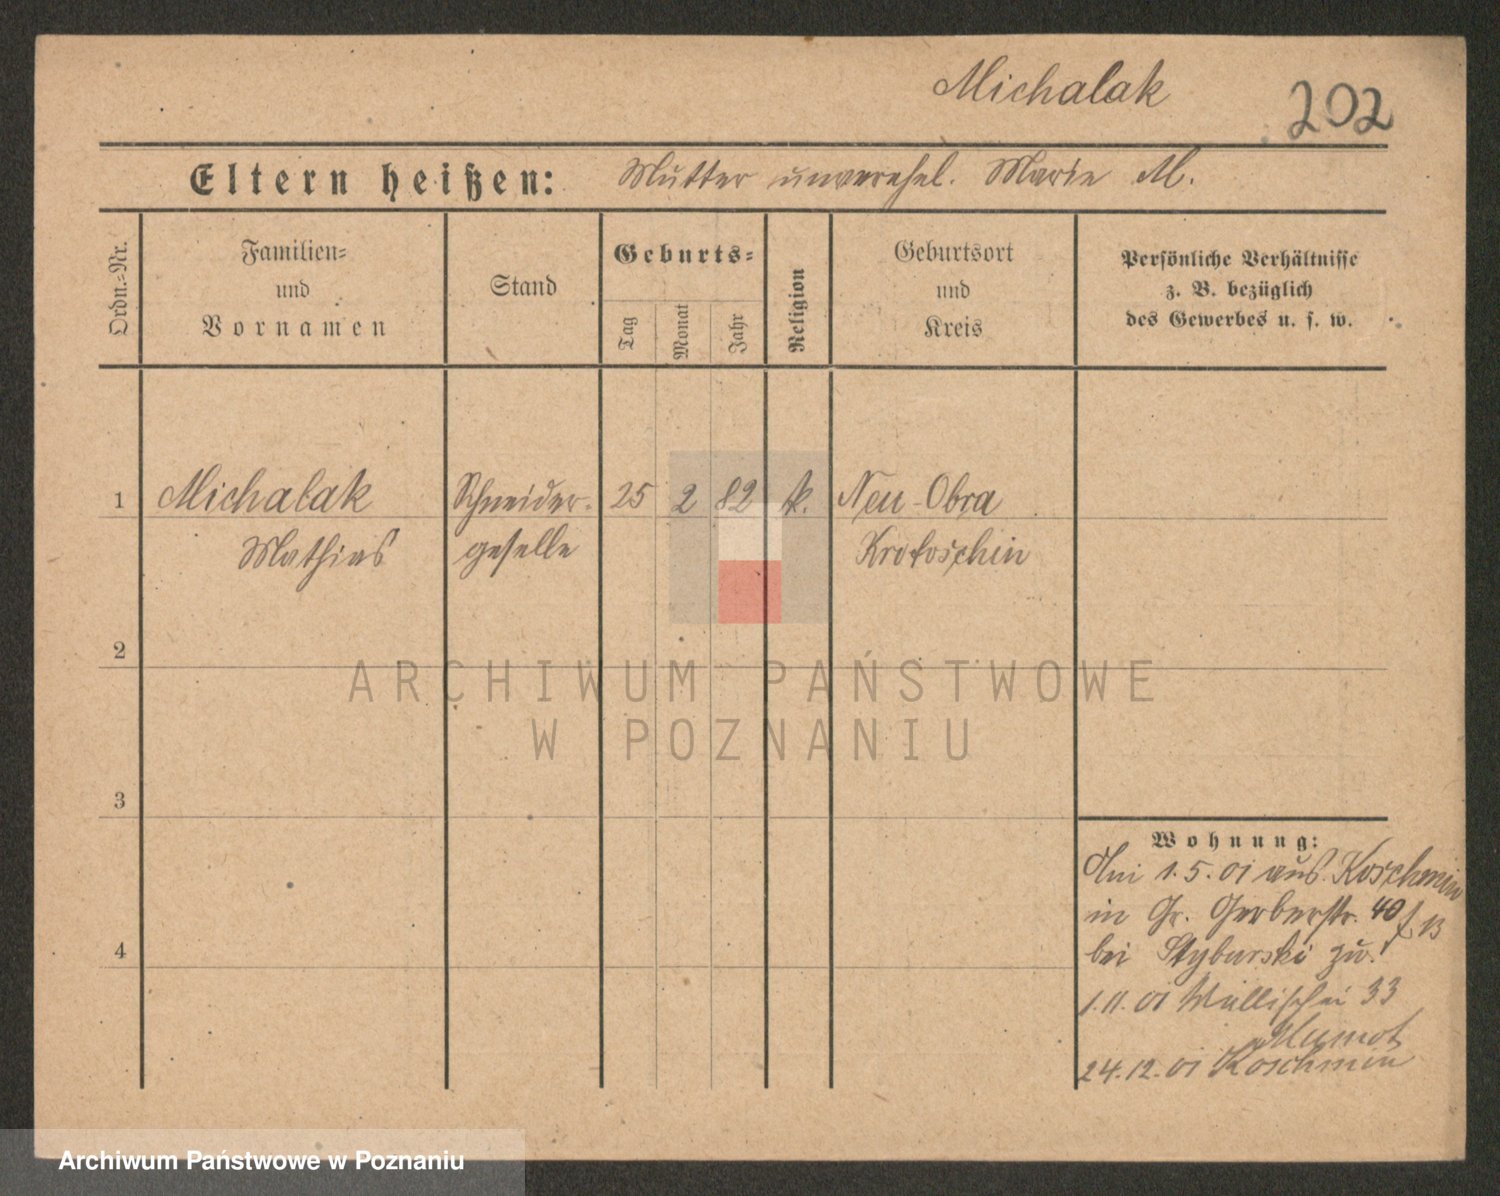 Michalak
202
Eltern heißen: Mutter unverehel. Marie M.
Ordn.-Nr.
Familien-
und
Vornamen
Stand
Geburts-
Tag
Monat
Jahr
Religion
Geburtsort
und
Kreis
Persönliche Verhältnisse
z. B. bezüglich
des Gewerbes u. s. w.
1 Michalak Schneider- 25 2 82 k. Neu-Obra
Mathias geselle Krotoschin
2
ARCHIWUM PAŃSTWOWE
W POZNANIU
3
Wohnung:
Am 1.5.01 aus Koschmin
in Gr. Gerberstr. 40
bei Styburski zu.
4
1.11.01 Wallischei 33
24.12.01 Koschmin
Archiwum Państwowe w Poznaniu